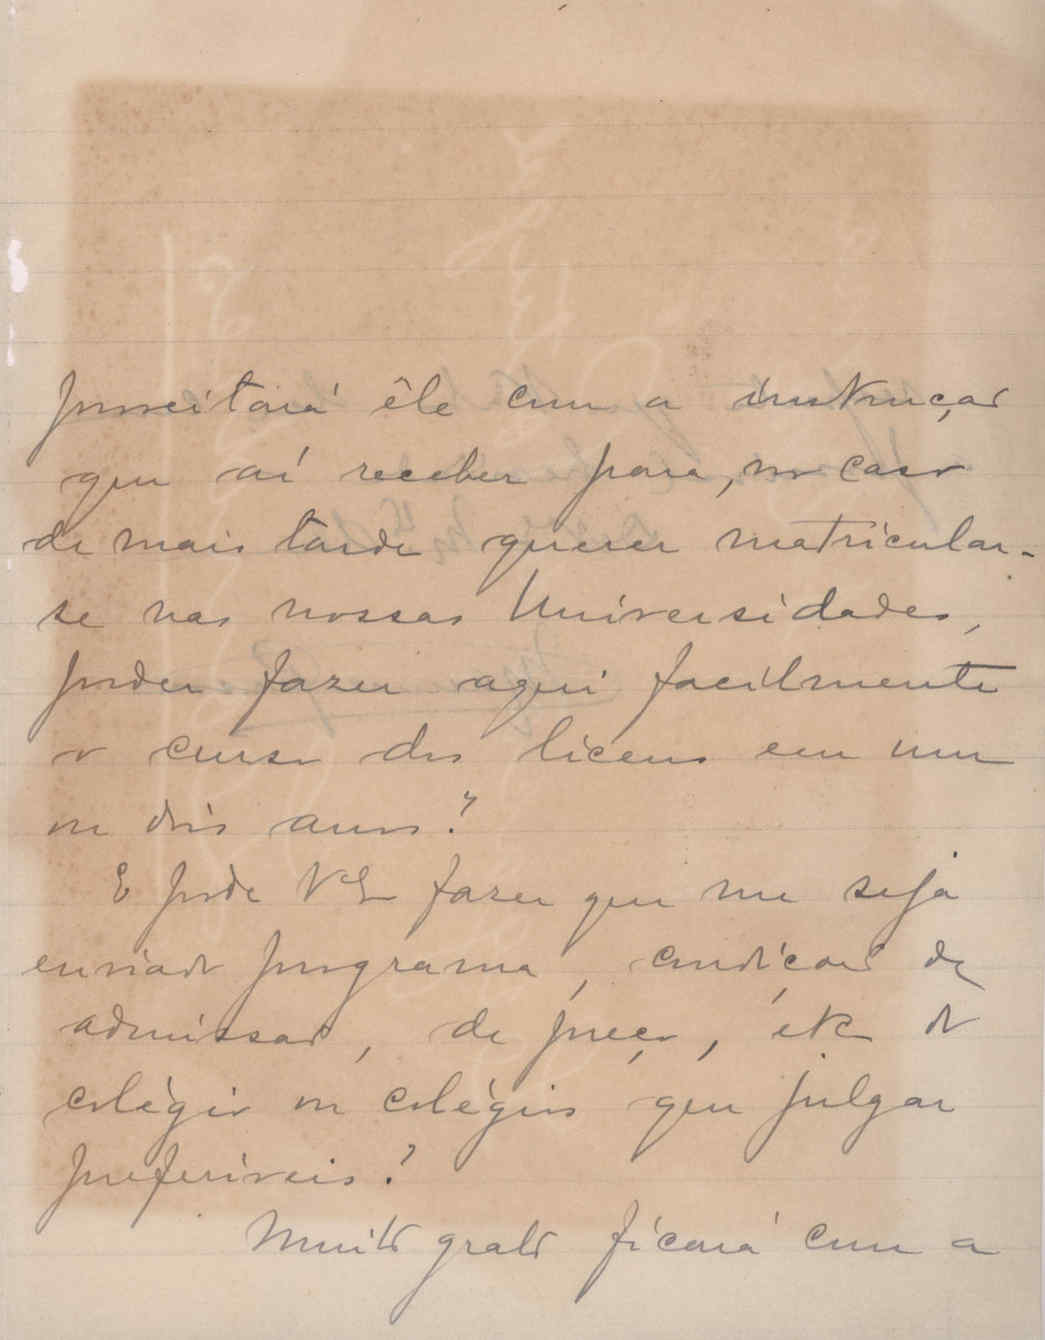 proveitará êle com a instrução
que aí receber para, no caso
de mais tarde querer matricular-
se nas nossas Universidades,
poder fazer aqui facilmente
o curso dos liceus em um
ou dois anos?
E pode V E fazer que me seja
enviado programa, condições de
admissão, de preço, etc do
colégio ou colégios que julgar
preferíveis?
Muito grato ficará com a